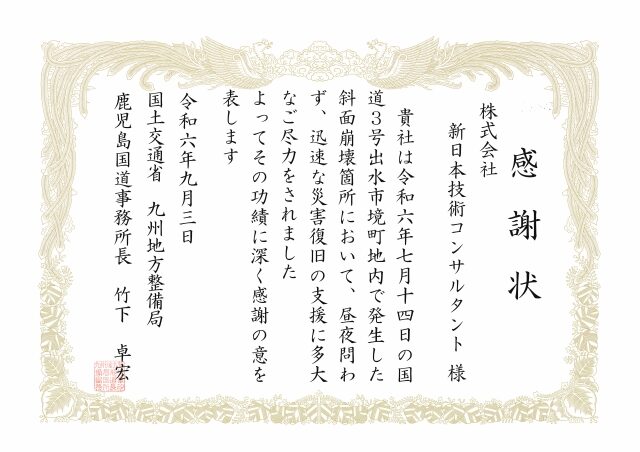 感謝状
株式会社
新日本技術コンサルタント 様
貴社は令和六年七月十四日の国
道３号出水市境町地内で発生した
斜面崩壊箇所において、昼夜問わ
ず、迅速な災害復旧の支援に多大
なご尽力をされました
よってその功績に深く感謝の意を
表します
令和六年九月三日
国土交通省 九州地方整備局
鹿児島国道事務所長 竹下 卓宏